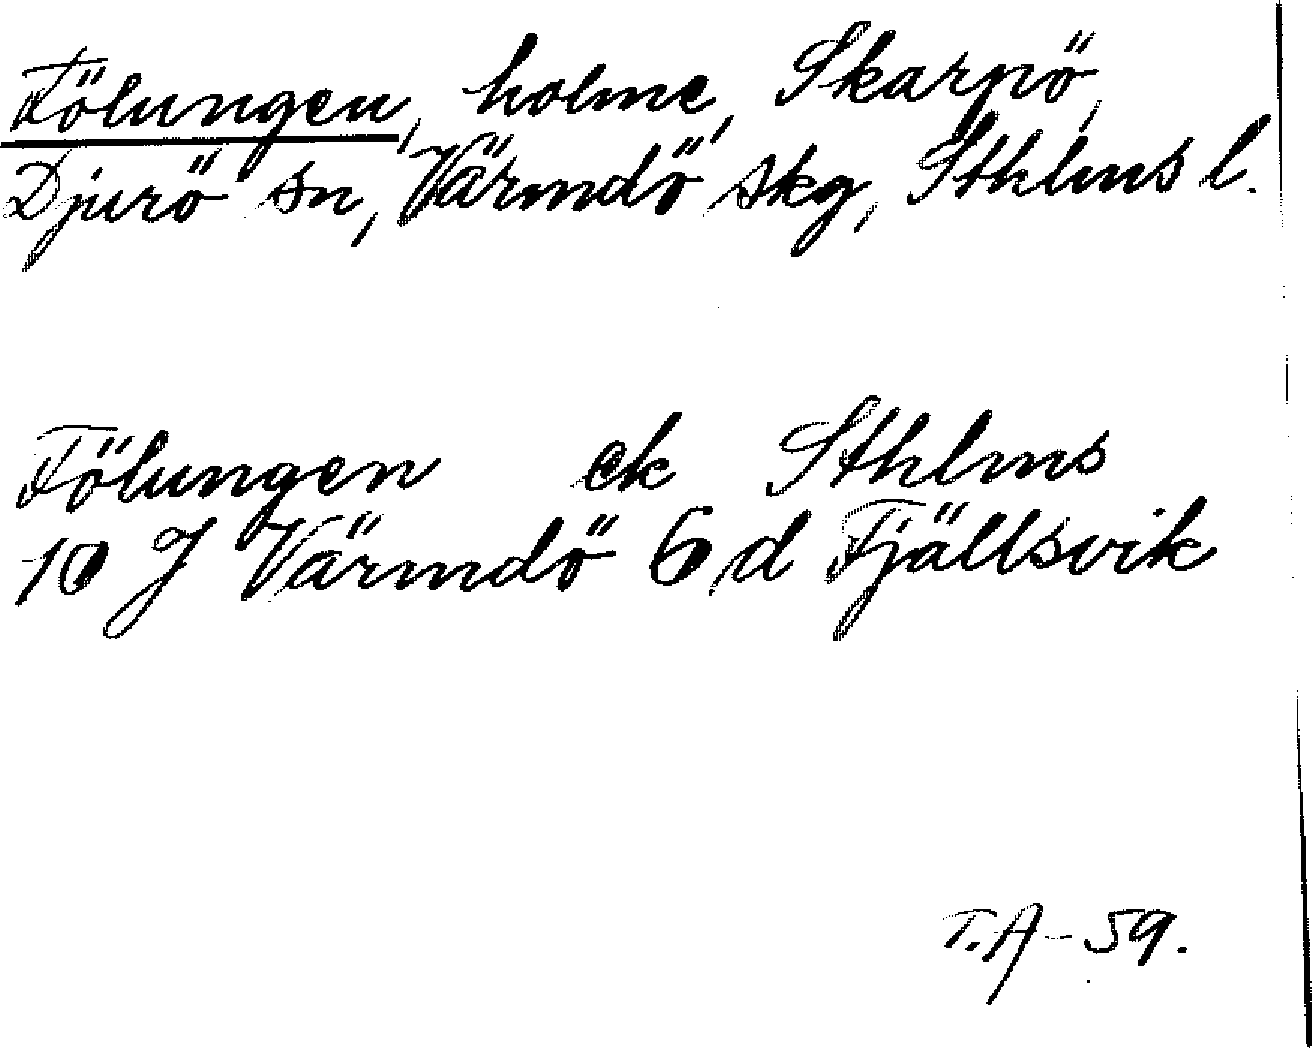 Fölungen, holme, Skarpö,
Djurö sn, Värmdö skg, Sthlms l.
Fölungen ek Sthlms
10 J Värmdö 6 d Fjällsvik
T.A - 59.